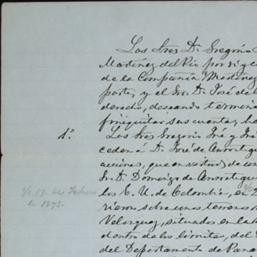 Los Sres D. Gregorio
Martinez del Rio por si y c
de la Compañia Martinez
parte, y el Sr. D. José de l
derecho, deseando termina
finiquitar sus cuentas, h
1º Los Sres Gregorio José y José
ceden á D. José de Amortegui
acciones, que en virtud de con
Sr. D. Domingo de Amortegui
los E. U. de Colombia, en 12
rieron sobre unos terrenos
Velasquez, situados en la
dentro de los limites, del
del Departamento de Pana